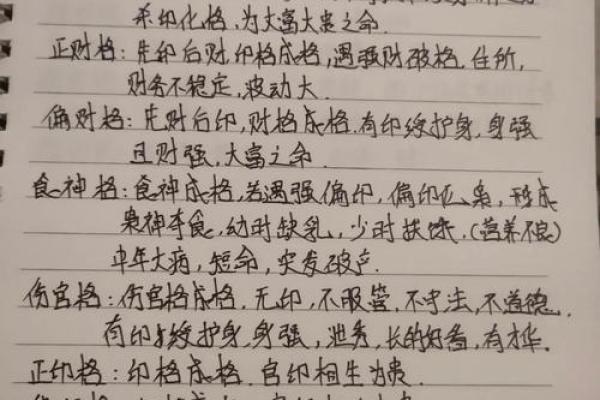 杀印化格,为大富大贵之命.
正财格:先印后财,印格成格,遇强财破格.住所,
财务不稳定,波动大.
偏财格:先财后印,财格成格.有印绶护身,身强
且财强,大富之命.
食神格:食神成格,若遇强偏印,偏印化枭,形成
枭神夺食,幼时缺乳,少时挨饿.(营养不良)
中年大病,短命,突发破产.
伤官格:伤官格成格,无印,不服管,不守法,不道德.
有印绶护身,身强,泄秀,长的好看,有才华.
正印格:印格成格.官印相生为贵.